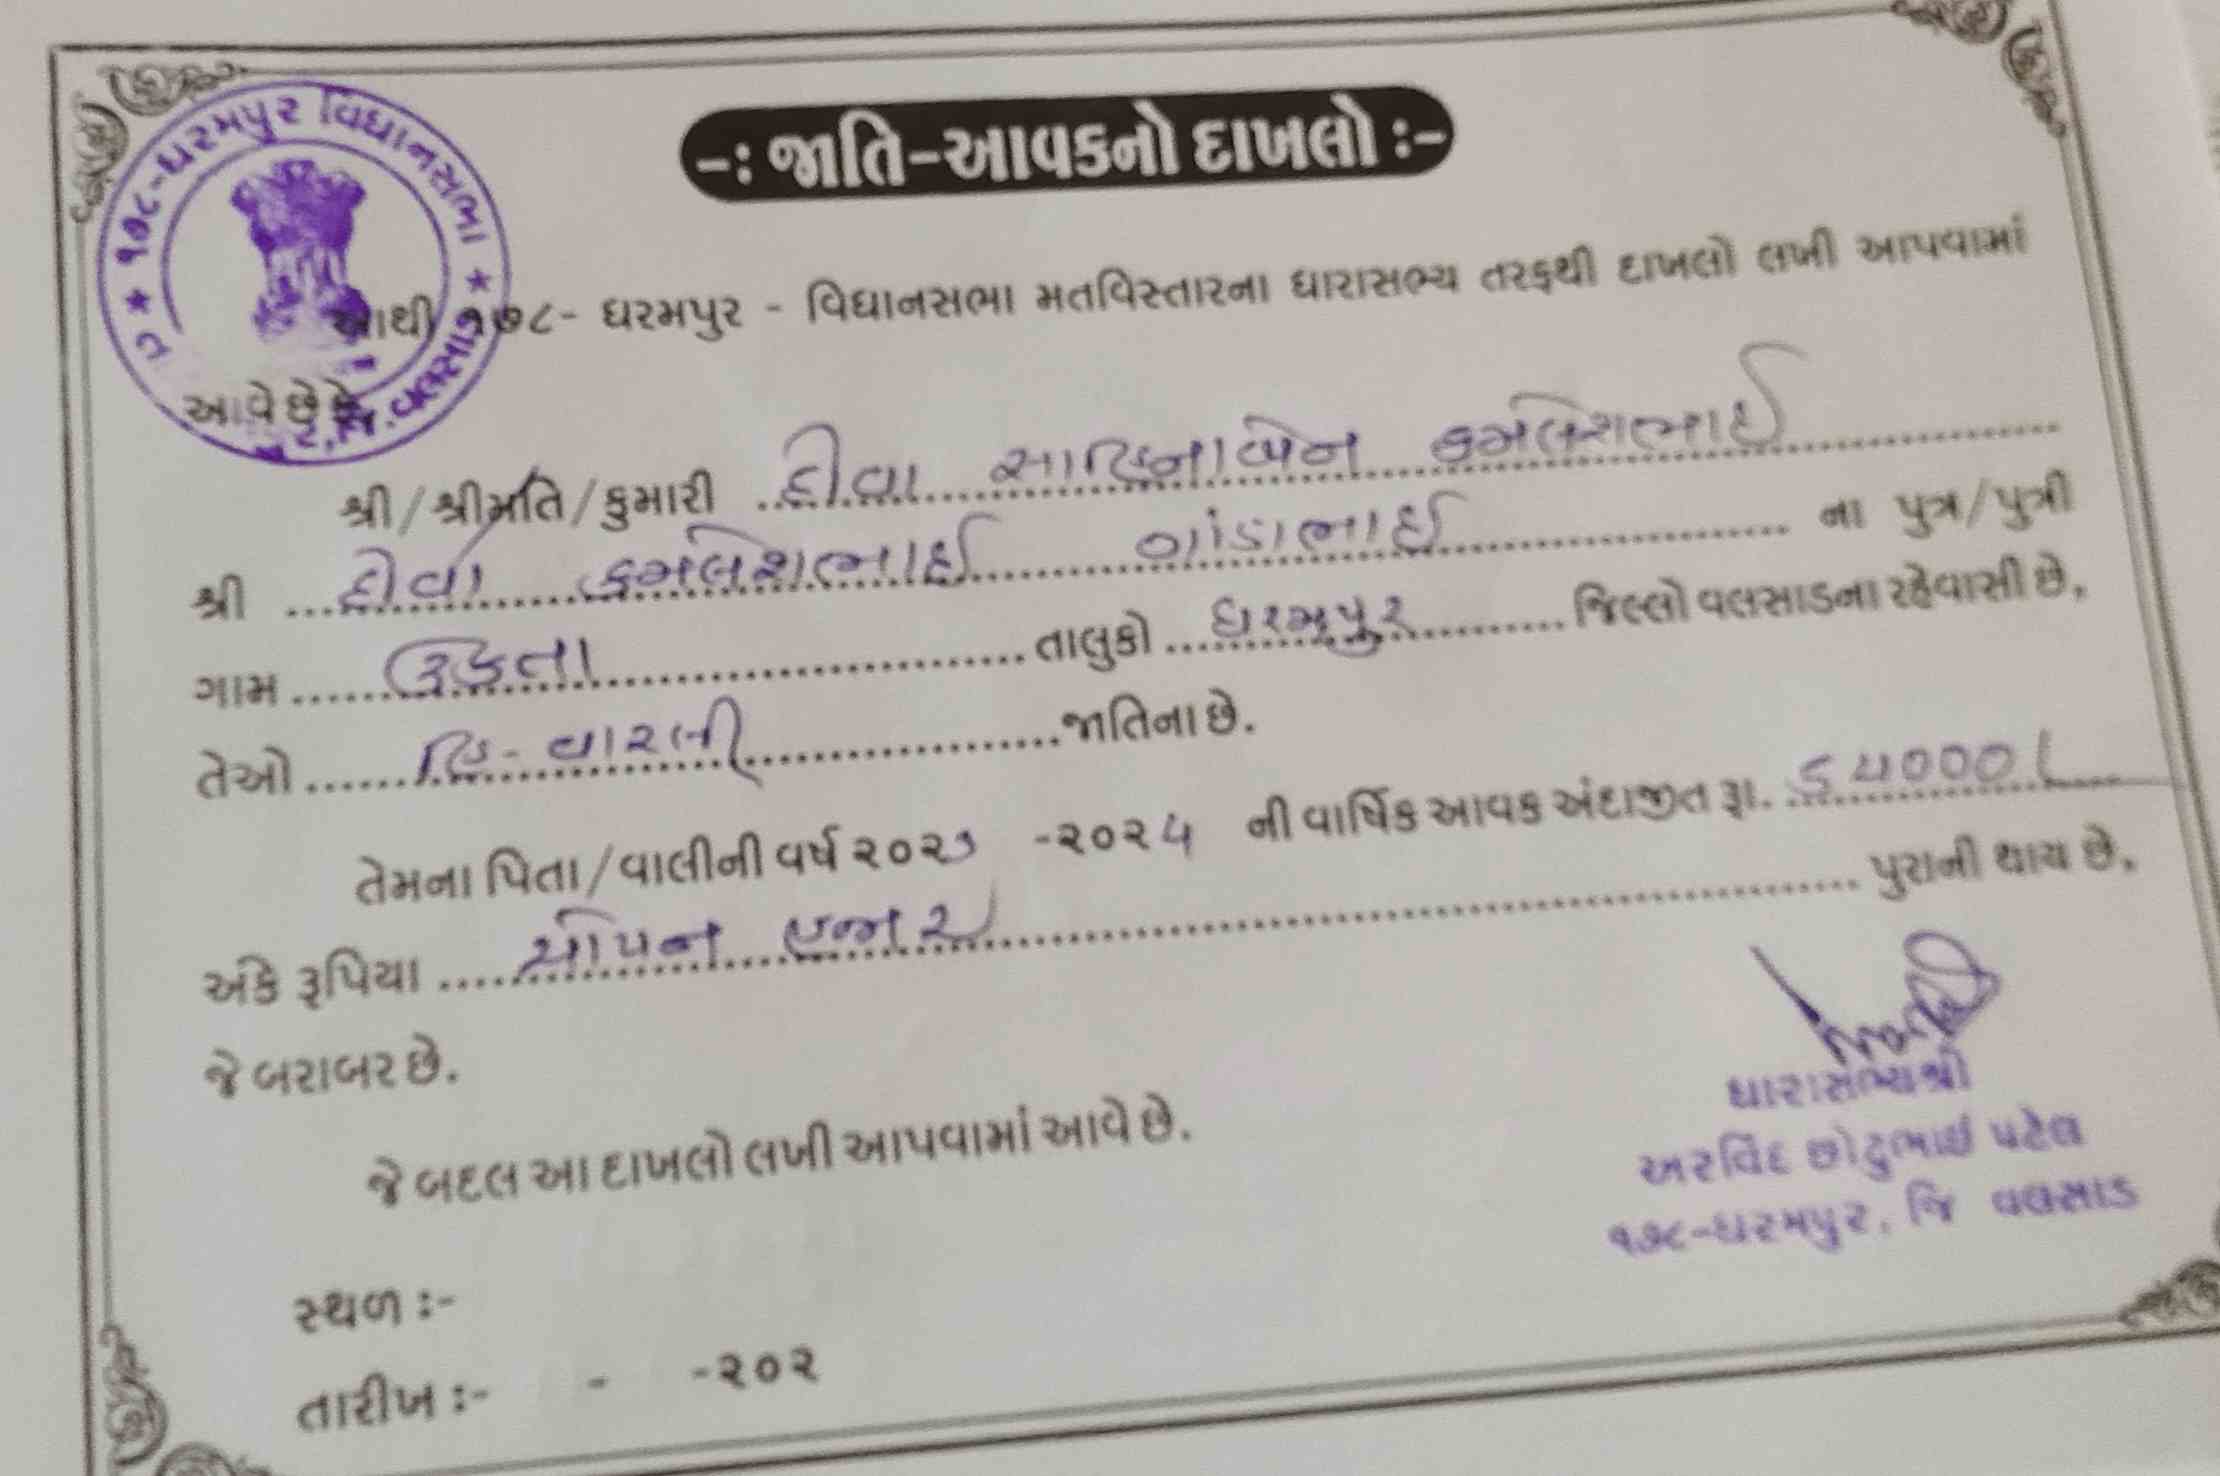 ૧૭૮-ધરમપુર વિધાનસભા
જિ.વલસાડ
-: જાતિ-આવકનો દાખલો :-
આથી ૧૭૮- ધરમપુર - વિધાનસભા મતવિસ્તારના ધારાસભ્ય તરફથી દાખલો લખી આપવામાં
આવે છે કે
શ્રી/શ્રીમતિ/કુમારી કમલેશભાઈ
શ્રી કમલેશભાઈ ગાંડાભાઈ ના પુત્ર/પુત્રી
ગામ તાલુકો ધરમપુર જિલ્લો વલસાડના રહેવાસી છે,
તેઓ હિ-વારલી જાતિના છે.
તેમના પિતા/વાલીની વર્ષ -૨૦૨૪ ની વાર્ષિક આવક અંદાજીત રૂા.
અંકે રૂપિયા હજાર પુરાની થાય છે,
જે બરાબર છે.
જે બદલ આ દાખલો લખી આપવામાં આવે છે.
ધારાસભ્યશ્રી
અરવિંદ છોટુભાઈ પટેલ
૧૭૮-ધરમપુર, જિ વલસાડ
સ્થળ :-
તારીખ :- - -૨૦૨